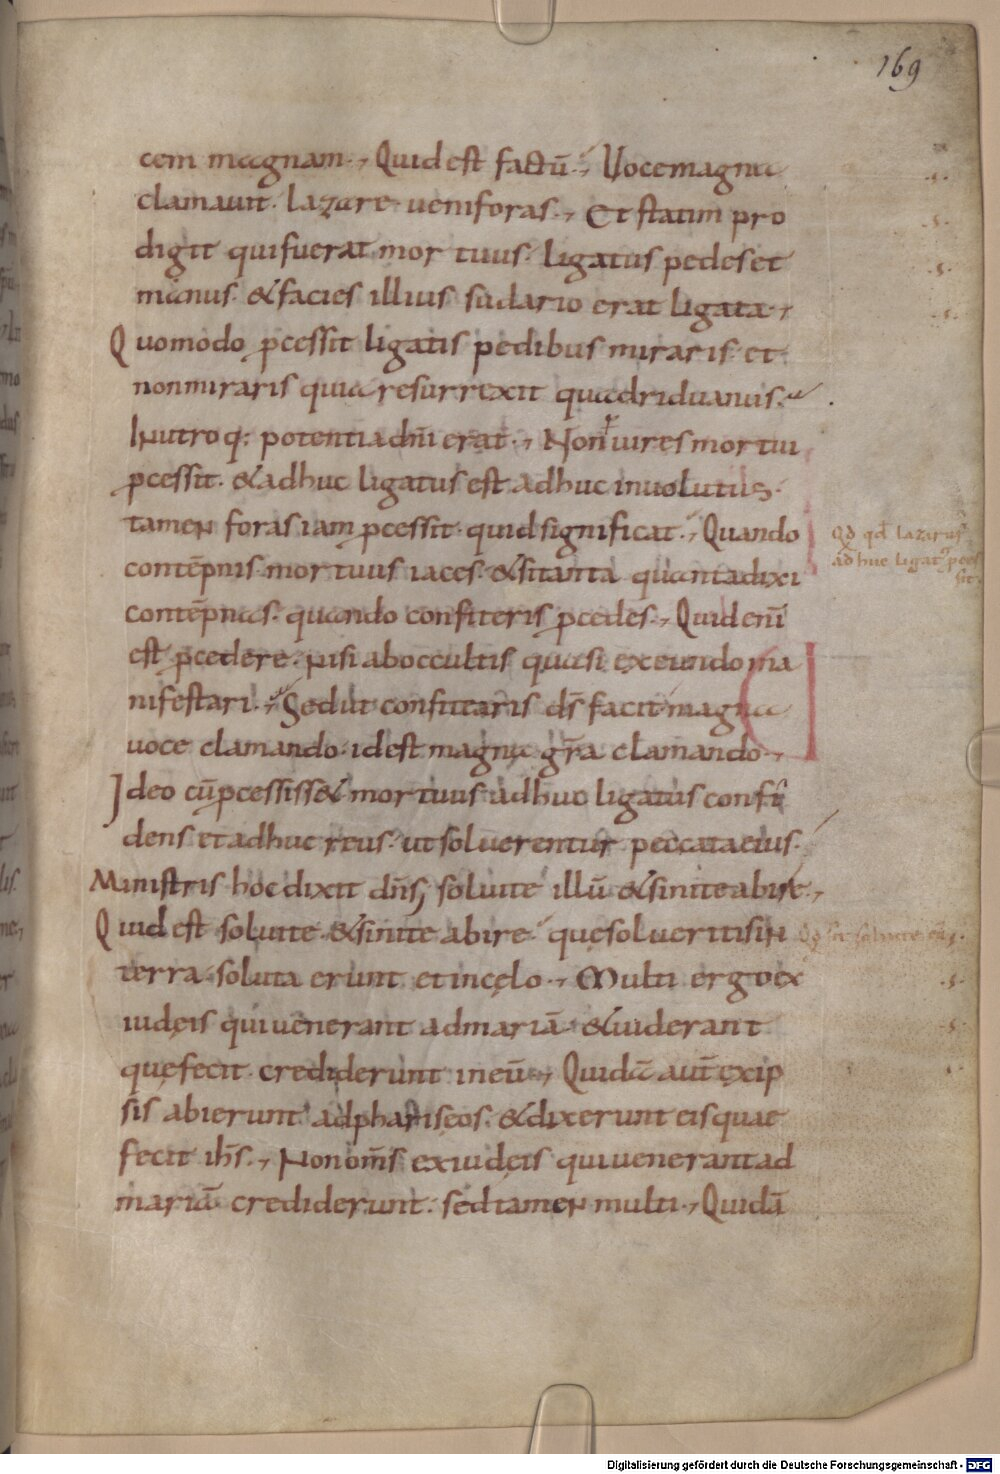 169
cem magnam., Quid est factū., Uoce magna
clamauit. lazare ueniforas., Et statim pro
digit qui fuerat mor tuus. ligatus pedes et
manus. & facies illius sudario erat ligata.,
Quomodo pcessit ligatis pedibus miraris. et
non miraris quia resurrexit quadriduanus.
In utroq; potentia dn̄i erat., Non uires mortui
pcessit. & adhuc ligatus est adhuc inuolutus.
tamen foras iam pcessit. quid significat., Quando
contēpnis mortuus iaces. & si tanta quanta dixi
contēpnas. quando confiteris pcedes., Quid enī
est pcedere. nisi ab occultis quasi exeundo ma
nifestari., Sed ut confitearis ds̄ facit magna
uoce clamando. id est magna gr̄a clamando.,
Ideo cū pcessiss& mortuus adhuc ligatus confi
dens et adhuc reus. ut soluerentur peccata eius.
Ministris hoc dixit dn̄s; soluite illū & sinite abire.,
Quid est soluite & sinite abire. quę solueritis in
terra. soluta erunt et in cęlo., Multi ergo ex
iudęis qui uenerant ad mariā. & uiderant
quę fecit. crediderunt in eū., Quidā aut̄ ex ip
sis abierunt ad phariseos. & dixerunt eis quae
fecit ih̄s., Non om̄s ex iudęis qui uenerant ad
mariā crediderunt. sed tamen multi., Quidā
Qd qd lazarus
adhuc ligat' pces
sit.
Digitalisierung gefördert durch die Deutsche Forschungsgemeinschaft - DFG